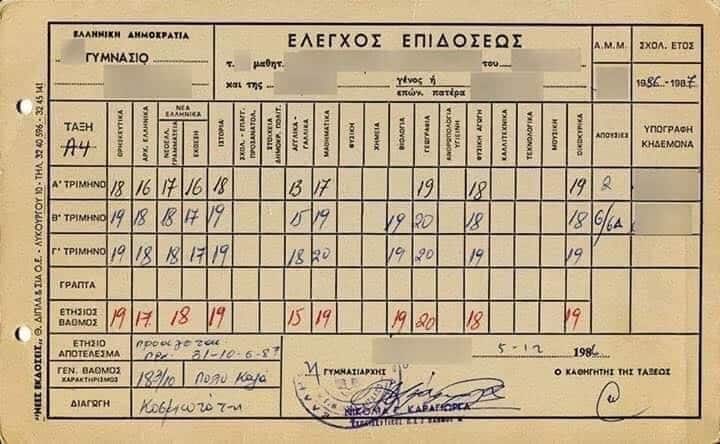 ΕΛΛΗΝΙΚΗ ΔΗΜΟΚΡΑΤΙΑ
ΓΥΜΝΑΣΙΟ
ΕΛΕΓΧΟΣ ΕΠΙΔΟΣΕΩΣ
τ. μαθητ. του
και της γένος ή
επών. πατέρα
Α.Μ.Μ.
ΣΧΟΛ. ΕΤΟΣ
1986-1987
ΤΑΞΗ
Α4
ΘΡΗΣΚΕΥΤΙΚΑ
ΑΡΧ. ΕΛΛΗΝΙΚΑ
ΝΕΑ ΕΛΛΗΝΙΚΑ
ΝΕΟΕΛΛ. ΓΡΑΜΜΑΤΕΙΑ
ΕΚΘΕΣΗ
ΙΣΤΟΡΙΑ
ΣΧΟΛ. - ΕΠΑΓΓ. ΠΡΟΣΑΝΑΤΟΛ.
ΣΤΟΙΧΕΙΑ ΔΗΜΟΚΡ. ΠΟΛΙΤ.
ΑΓΓΛΙΚΑ - ΓΑΛΛΙΚΑ
ΜΑΘΗΜΑΤΙΚΑ
ΦΥΣΙΚΗ
ΧΗΜΕΙΑ
ΒΙΟΛΟΓΙΑ
ΓΕΩΓΡΑΦΙΑ
ΑΝΘΡΩΠΟΛΟΓΙΑ ΥΓΙΕΙΝΗ
ΦΥΣΙΚΗ ΑΓΩΓΗ
ΚΑΛΛΙΤΕΧΝΙΚΑ
ΤΕΧΝΟΛΟΓΙΚΑ
ΜΟΥΣΙΚΗ
ΟΙΚΟΚΥΡΙΚΑ
ΑΠΟΥΣΙΕΣ
ΥΠΟΓΡΑΦΗ ΚΗΔΕΜΟΝΑ
Α' ΤΡΙΜΗΝΟ 18 16 17 16 18 13 17 19 18 19 2
Β' ΤΡΙΜΗΝΟ 19 18 18 17 19 15 19 19 20 18 18
Γ' ΤΡΙΜΗΝΟ 19 18 18 17 19 18 20 19 20 18 19
ΓΡΑΠΤΑ
ΕΤΗΣΙΟΣ ΒΑΘΜΟΣ 19 17 18 19 15 19 19 20 18 19
ΕΤΗΣΙΟ ΑΠΟΤΕΛΕΣΜΑ
προαγεται
31-10-6-87
ΓΕΝ. ΒΑΘΜΟΣ ΧΑΡΑΚΤΗΡΙΣΜΟΣ
183/10 Πολυ Καλά
ΔΙΑΓΩΓΗ
Κοσμιωτάτη
5-12 1986
Η ΓΥΜΝΑΣΙΑΡΧΗΣ
Ο ΚΑΘΗΓΗΤΗΣ ΤΗΣ ΤΑΞΕΩΣ
ΚΑΡΑΓΙΩΡΓΑ
"ΝΕΕΣ ΕΚΔΟΣΕΙΣ" Θ. ΔΙΠΛΑ & ΣΙΑ Ο.Ε. - ΛΥΚΟΥΡΓΟΥ 10 - ΤΗΛ. 32 40 596 - 32 45 141